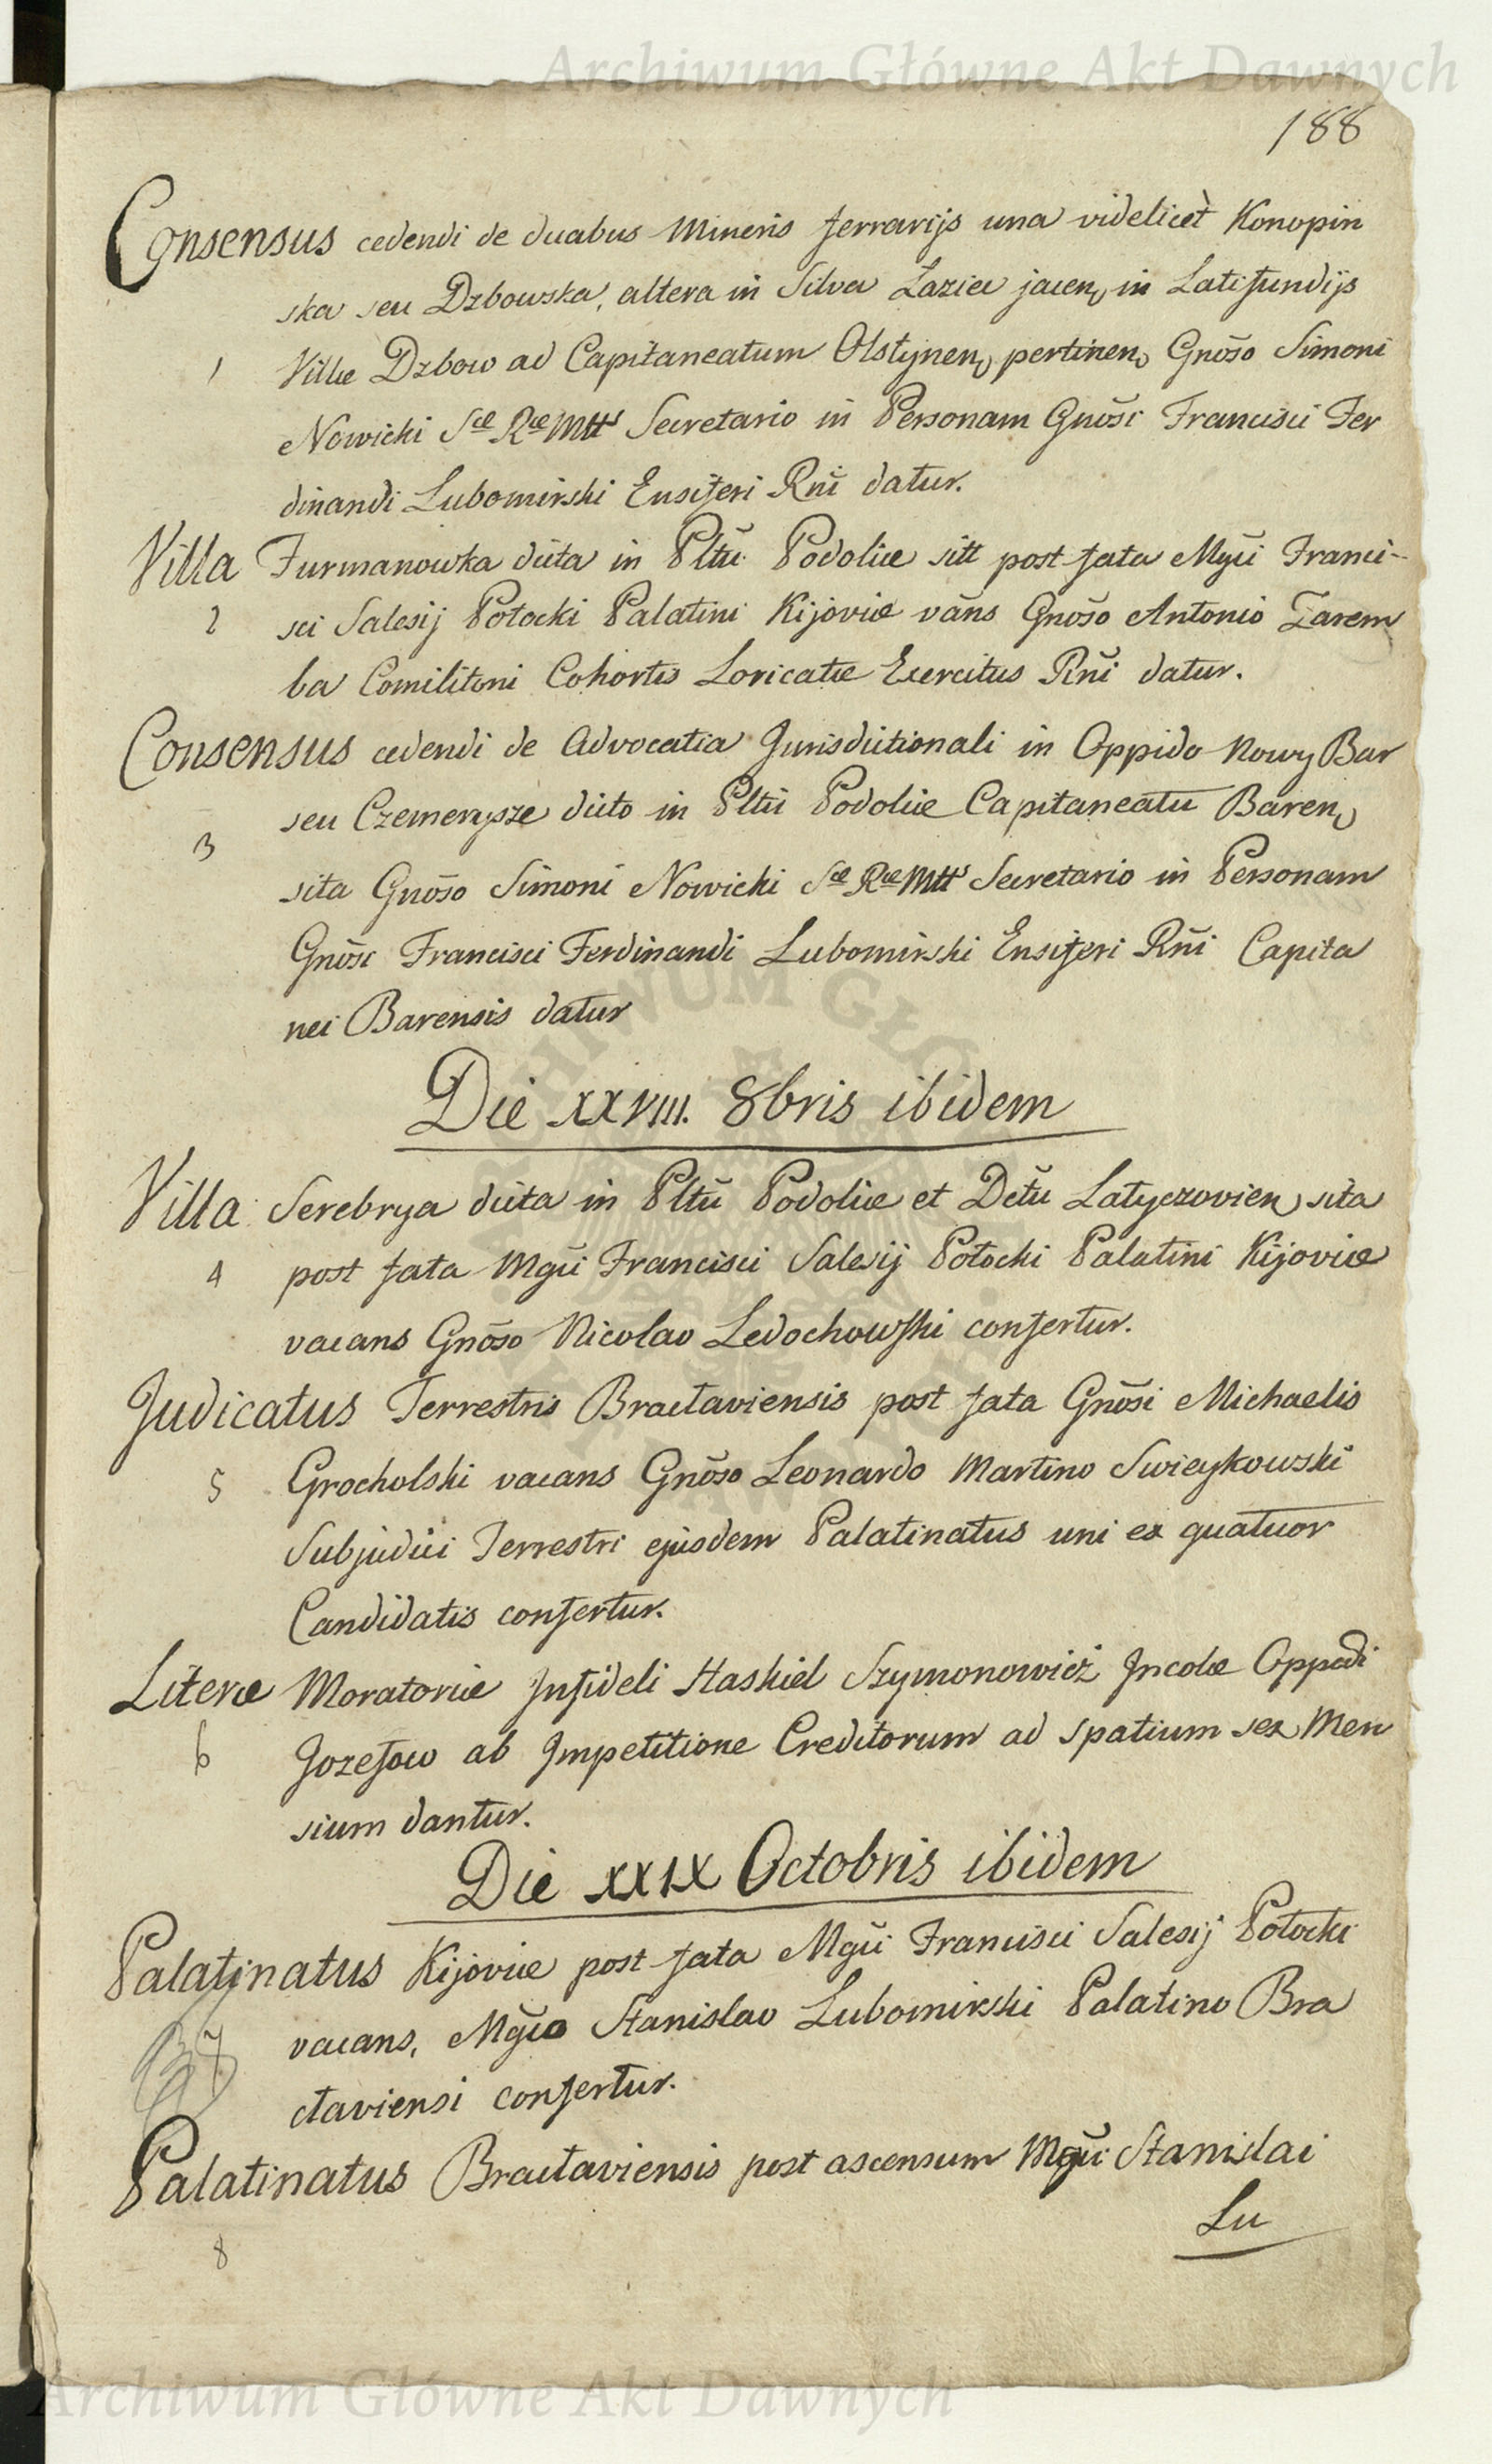 Archiwum Główne Akt Dawnych
188
Consensus cedendi de duabus Mineris ferrarijs una videlicet Konopin
ska seu Dzbowska, altera in Silva Łaziec jacen, in Latifundijs
1 Villæ Dzbow ad Capitaneatum Olstynen, pertinen, Gnõso Simoni
Nowicki Sæ Ræ Mtt Secretario in Personam Gnõsi Francisci Fer
dinandi Lubomirski Ensiferi Rñi datur.
Villa Furmanowka dicta in Pltũ Podoliæ sitt post fata Mgũi Franci-
2 sci Salesij Potocki Palatini Kijoviæ vãns Gnõso Antonio Zarem
ba Comilitoni Cohortis Loricatæ Exercitus Rñi datur.
Consensus cedendi de Advocatia Jurisdictionali in Oppido Nowy Bar
seu Czemerysze dicto in Pltũ Podoliæ Capitaneatu Baren,
3
sita Gnõso Simoni Nowicki Sæ Ræ Mtt Secretario in Personam
Gnõsi Francisci Ferdinandi Lubomirski Ensiferi Rñi Capita
nei Barensis datur
Die XXVIII. 8bris ibidem
Villa Serebrya dicta in Pltũ Podoliæ et Dctũ Latyczovien, sita
4 post fata Mgũi Francisci Salesij Potocki Palatini Kijoviæ
vacans Gnõso Nicolao Ledochowski confertur.
Judicatus Terrestris Braclaviensis post fata Gnõsi Michaelis
5 Grocholski vacans Gnõso Leonardo Martino Swieykowski
Subjudici Terrestri ejusdem Palatinatus uni ex quatuor
Candidatis confertur.
Literæ Moratoriæ Infideli Haskiel Szymonowicz Incolæ Oppidi
6 Jozefow ab Impetitione Creditorum ad spatium sex Men
sium dantur.
Die XXIX Octobris ibidem
Palatinatus Kijoviæ post fata Mgũi Francisci Salesij Potocki
7 vacans, Mgũo Stanislao Lubomirski Palatino Bra
claviensi confertur.
Palatinatus Braclaviensis post ascensum Mgũi Stanislai
Lu
8
Archiwum Główne Akt Dawnych